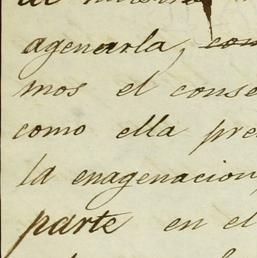 agenarla, com
mos el conse
como ella pre
la enagenacion,
parte en el